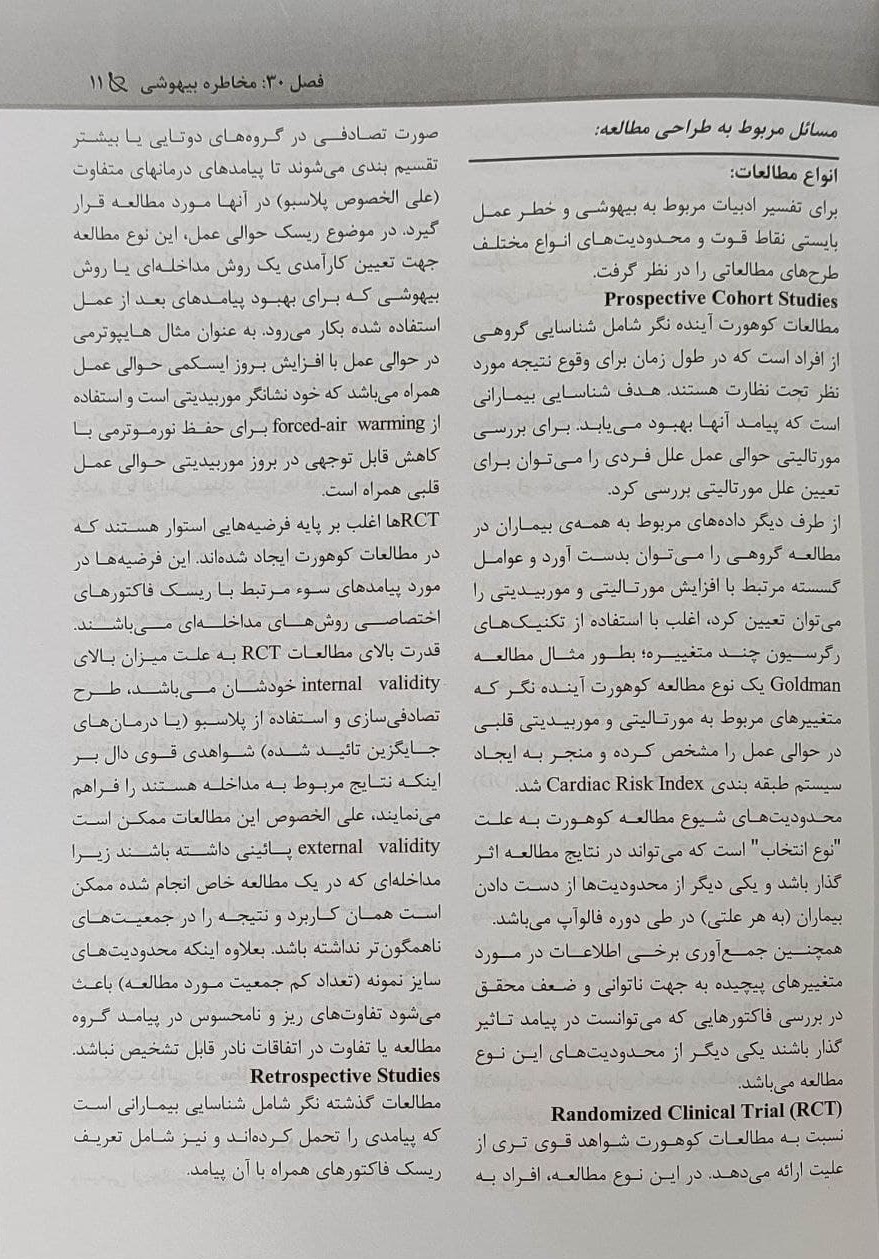 فصل ۳۰: مخاطره بیهوشی ۱۱
مسائل مربوط به طراحی مطالعه:
انواع مطالعات:
برای تفسیر ادبیات مربوط به بیهوشی و خطر عمل
بایستی نقاط قوت و محدودیت‌های انواع مختلف
طرح‌های مطالعاتی را در نظر گرفت.
Prospective Cohort Studies
مطالعات کوهورت آینده نگر شامل شناسایی گروهی
از افراد است که در طول زمان برای وقوع نتیجه مورد
نظر تحت نظارت هستند. هدف شناسایی بیمارانی
است که پیامد آنها بهبود می‌یابد. برای بررسی
مورتالیتی حوالی عمل علل فردی را می‌توان برای
تعیین علل مورتالیتی بررسی کرد.
از طرف دیگر داده‌های مربوط به همه‌ی بیماران در
مطالعه گروهی را می‌توان بدست آورد و عوامل
گسسته مرتبط با افزایش مورتالیتی و موربیدیتی را
می‌توان تعیین کرد، اغلب با استفاده از تکنیک‌های
رگرسیون چند متغییره؛ بطور مثال مطالعه
Goldman یک نوع مطالعه کوهورت آینده نگر که
متغییرهای مربوط به مورتالیتی و موربیدیتی قلبی
در حوالی عمل را مشخص کرده و منجر به ایجاد
سیستم طبقه بندی Cardiac Risk Index شد.
محدودیت‌های شیوع مطالعه کوهورت به علت
"نوع انتخاب" است که می‌تواند در نتایج مطالعه اثر
گذار باشد و یکی دیگر از محدودیت‌ها از دست دادن
بیماران (به هر علتی) در طی دوره فالوآپ می‌باشد.
همچنین جمع‌آوری برخی اطلاعات در مورد
متغییرهای پیچیده به جهت ناتوانی و ضعف محقق
در بررسی فاکتورهایی که می‌توانست در پیامد تاثیر
گذار باشند یکی دیگر از محدودیت‌های این نوع
مطالعه می‌باشد.
Randomized Clinical Trial (RCT)
نسبت به مطالعات کوهورت شواهد قوی تری از
علیت ارائه می‌دهد. در این نوع مطالعه، افراد به
صورت تصادفی در گروه‌های دوتایی یا بیشتر
تقسیم بندی می‌شوند تا پیامدهای درمانهای متفاوت
(علی الخصوص پلاسبو) در آنها مورد مطالعه قرار
گیرد. در موضوع ریسک حوالی عمل، این نوع مطالعه
جهت تعیین کارآمدی یک روش مداخله‌ای یا روش
بیهوشی که برای بهبود پیامدهای بعد از عمل
استفاده شده بکار می‌رود. به عنوان مثال هایپوترمی
در حوالی عمل با افزایش بروز ایسکمی حوالی عمل
همراه می‌باشد که خود نشانگر موربیدیتی است و استفاده
از forced-air warming برای حفظ نورموترمی با
کاهش قابل توجهی در بروز موربیدیتی حوالی عمل
قلبی همراه است.
RCTها اغلب بر پایه فرضیه‌هایی استوار هستند که
در مطالعات کوهورت ایجاد شده‌اند. این فرضیه‌ها در
مورد پیامدهای سوء مرتبط با ریسک فاکتورهای
اختصاصی روش‌های مداخله‌ای می‌باشند.
قدرت بالای مطالعات RCT به علت میزان بالای
internal validity خودشان می‌باشد، طرح
تصادفی‌سازی و استفاده از پلاسبو (یا درمان‌های
جایگزین تائید شده) شواهدی قوی دال بر
اینکه نتایج مربوط به مداخله هستند را فراهم
می‌نمایند، علی الخصوص این مطالعات ممکن است
external validity پائینی داشته باشند زیرا
مداخله‌ای که در یک مطالعه خاص انجام شده ممکن
است همان کاربرد و نتیجه را در جمعیت‌های
ناهمگون‌تر نداشته باشد. بعلاوه اینکه محدودیت‌های
سایز نمونه (تعداد کم جمعیت مورد مطالعه) باعث
می‌شود تفاوت‌های ریز و نامحسوس در پیامد گروه
مطالعه یا تفاوت در اتفاقات نادر قابل تشخیص نباشد.
Retrospective Studies
مطالعات گذشته نگر شامل شناسایی بیمارانی است
که پیامدی را تحمل کرده‌اند و نیز شامل تعریف
ریسک فاکتورهای همراه با آن پیامد.